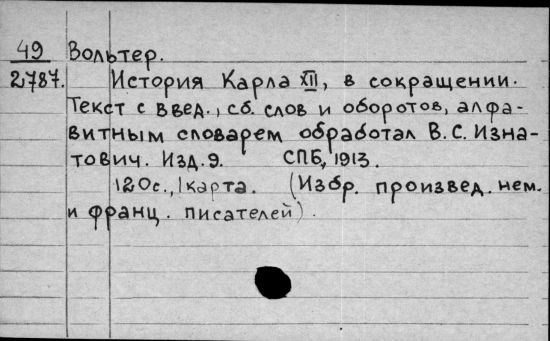 49 Вольтер.
2787. История Карла XII, в сокращении.
Текст с введ., сб. слов и оборотов, алфа-
витным словарем обработал В.С. Изна-
тович. Изд. 9. СПБ, 1913.
120с., 1 карта. (Избр. произвед. нем.
и франц. писателей).